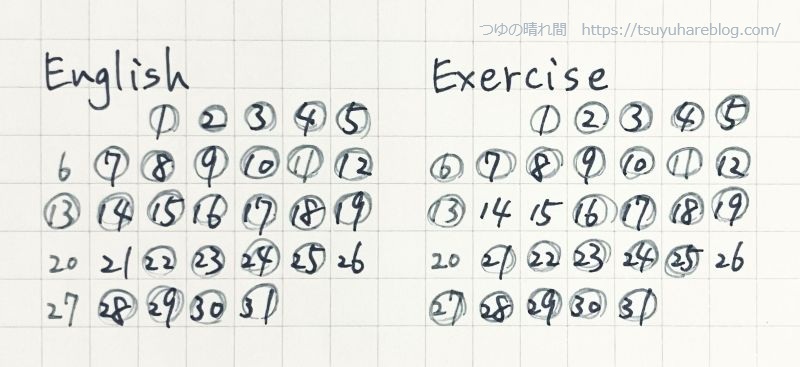 つゆの晴れ間 https://tsuyuhareblog.com/
English
1 2 3 4 5
6 7 8 9 10 11 12
13 14 15 16 17 18 19
20 21 22 23 24 25 26
27 28 29 30 31
Exercise
1 2 3 4 5
6 7 8 9 10 11 12
13 14 15 16 17 18 19
20 21 22 23 24 25 26
27 28 29 30 31